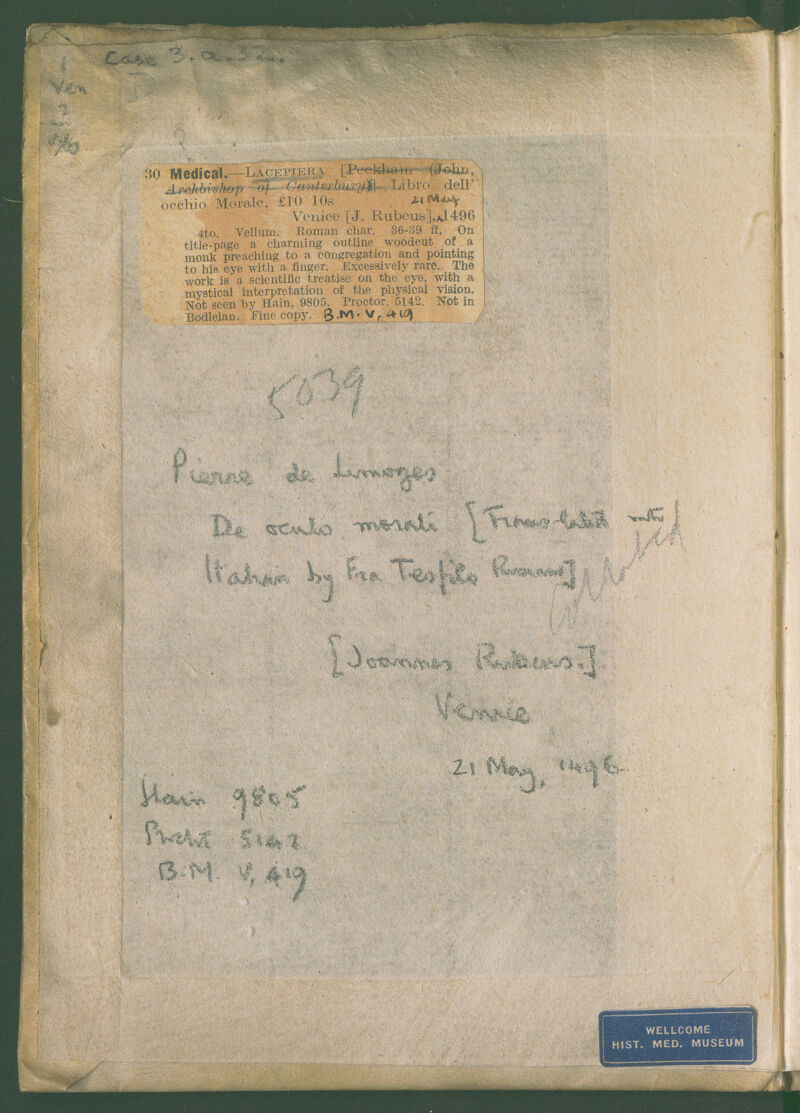 Case 3. a. 32.
1
Ven
30 Medical.—LACEPIERA [Peckham (John,
Archbishop of Canterbury)], Libro dell'
occhio Morale, £10 10s 21 May
Venice [J. Rubeus], 1496
4to. Vellum. Roman char. 36-39 ff. On
title-page a charming outline woodcut of a
monk preaching to a congregation and pointing
to his eye with a finger. Excessively rare. The
work is a scientific treatise on the eye, with a
mystical interpretation of the physical vision.
Not seen by Hain, 9805. Proctor, 5142. Not in
Bodleian. Fine copy. B.M. V, 419
5039
Pierre de Limoges
De oculo morali [Translated into
Italian by Fra Teofilo Romano]
collated
[Joannes Rubeus.]
Venice
21 May, 1496
Hain 9805
Proctor 5142
B.M. V, 419
WELLCOME
HIST. MED. MUSEUM